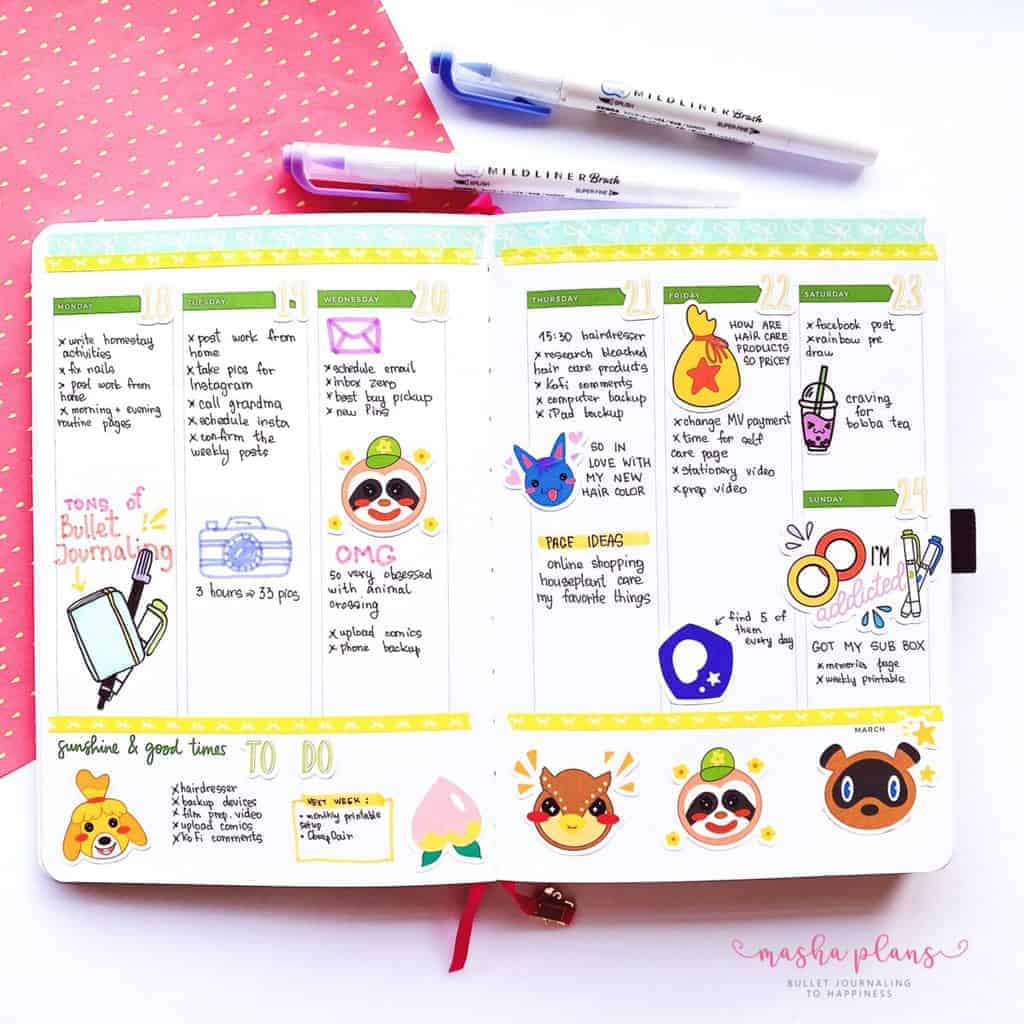 MILDLINER Brush
BRUSH
SUPER FINE
MILDLINER Brush
BRUSH
SUPER FINE
MONDAY 18
x write homestay
activities
x fix nails
x post work from
home
x morning + evening
routine pages
TONS of
Bullet
Journaling
TUESDAY 19
x post work from
home
x take pics for
Instagram
x call grandma
x schedule insta
x confirm the
weekly posts
3 hours ⇒ 33 pics
WEDNESDAY 20
x schedule email
x inbox zero
x best buy pickup
x new Pins
OMG
so very obsessed
with animal
crossing
x upload comics
x phone backup
THURSDAY 21
15:30 hairdresser
x research bleached
hair care products
x Kofi comments
x computer backup
x iPad backup
SO IN
LOVE WITH
MY NEW
HAIR COLOR
PAGE IDEAS
online shopping
houseplant care
my favorite things
FRIDAY 22
HOW ARE
HAIR CARE
PRODUCTS
SO PRICEY
x change MV payment
x time for self
care page
x stationery video
x prep video
← find 5 of
them
every day
SATURDAY 23
x facebook post
x rainbow pre
draw
craving
for
bobba tea
SUNDAY 24
I'M
addicted
GOT MY SUB BOX
x memories page
x weekly printable
sunshine & good times TO DO
x hairdresser
x backup devices
x film prep. video
x upload comics
x Ko Fi comments
NEXT WEEK:
• monthly printable
setup
MARCH
masha plans
BULLET JOURNALING
TO HAPPINESS